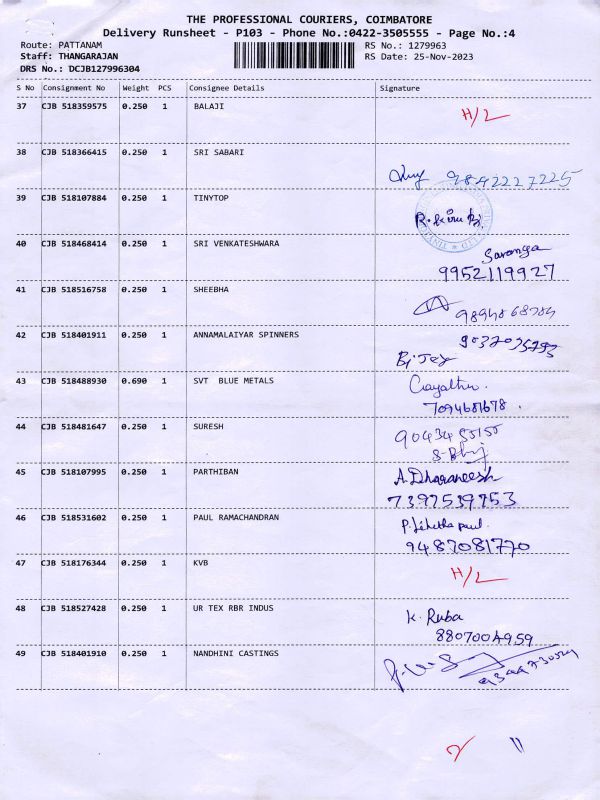 THE PROFESSIONAL COURIERS, COIMBATORE
Delivery Runsheet - P103 - Phone No.:0422-3505555 - Page No.:4
Route: PATTANAM RS No.: 1279963
Staff: THANGARAJAN RS Date: 25-Nov-2023
DRS No.: DCJB127996304
S No Consignment No Weight PCS Consignee Details Signature
37 CJB 518359575 0.250 1 BALAJI H/L
38 CJB 518366415 0.250 1 SRI SABARI
9842227225
39 CJB 518107884 0.250 1 TINYTOP
40 CJB 518468414 0.250 1 SRI VENKATESHWARA Saranga
9952119927
41 CJB 518516758 0.250 1 SHEEBHA
42 CJB 518401911 0.250 1 ANNAMALAIYAR SPINNERS
43 CJB 518488930 0.690 1 SVT BLUE METALS
7094681678.
44 CJB 518481647 0.250 1 SURESH
45 CJB 518107995 0.250 1 PARTHIBAN A. Dharaneesh
7397539753
46 CJB 518531602 0.250 1 PAUL RAMACHANDRAN
9487081770
47 CJB 518176344 0.250 1 KVB H/L
48 CJB 518527428 0.250 1 UR TEX RBR INDUS K. Ruba
8807004959
49 CJB 518401910 0.250 1 NANDHINI CASTINGS
2 11